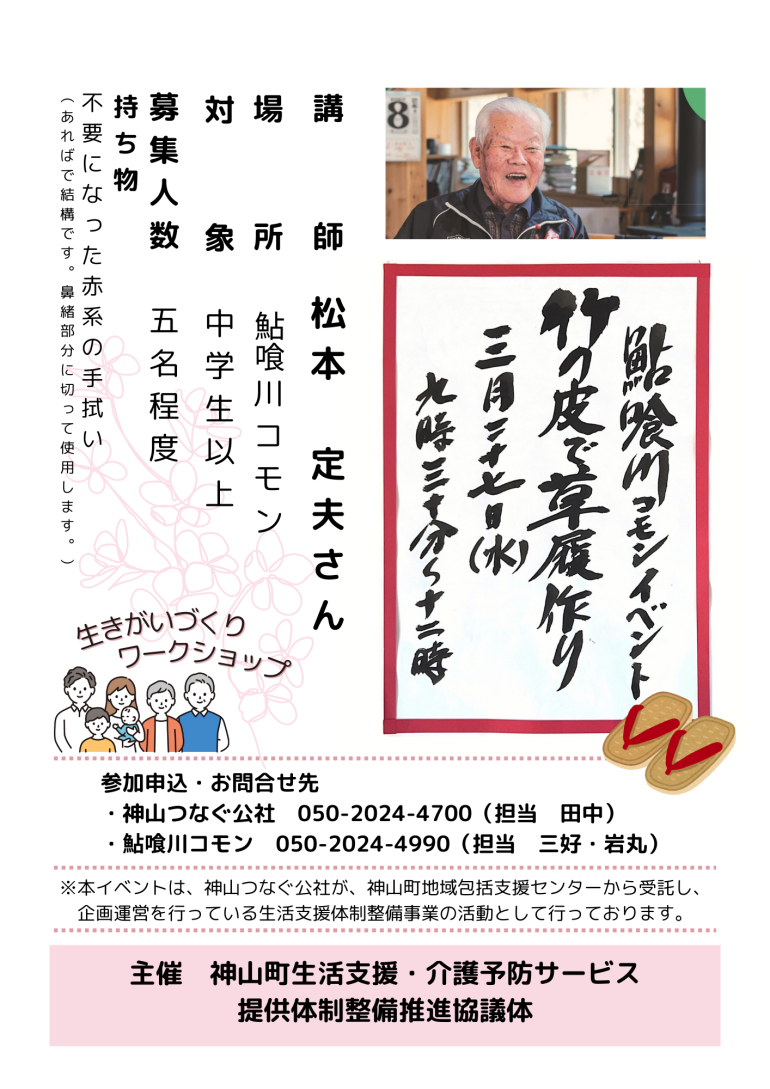 8
鮎喰川コモンイベント
竹の皮で草履作り
三月二十七日(水)
九時三十分〜十二時
講師 松本 定夫さん
場所 鮎喰川コモン
対象 中学生以上
募集人数 五名程度
持ち物
不要になった赤系の手拭い
(あればで結構です。鼻緒部分に切って使用します。)
生きがいづくり
ワークショップ
参加申込・お問合せ先
・神山つなぐ公社 050-2024-4700(担当 田中)
・鮎喰川コモン 050-2024-4990(担当 三好・岩丸)
※本イベントは、神山つなぐ公社が、神山町地域包括支援センターから受託し、
企画運営を行っている生活支援体制整備事業の活動として行っております。
主催 神山町生活支援・介護予防サービス
提供体制整備推進協議体